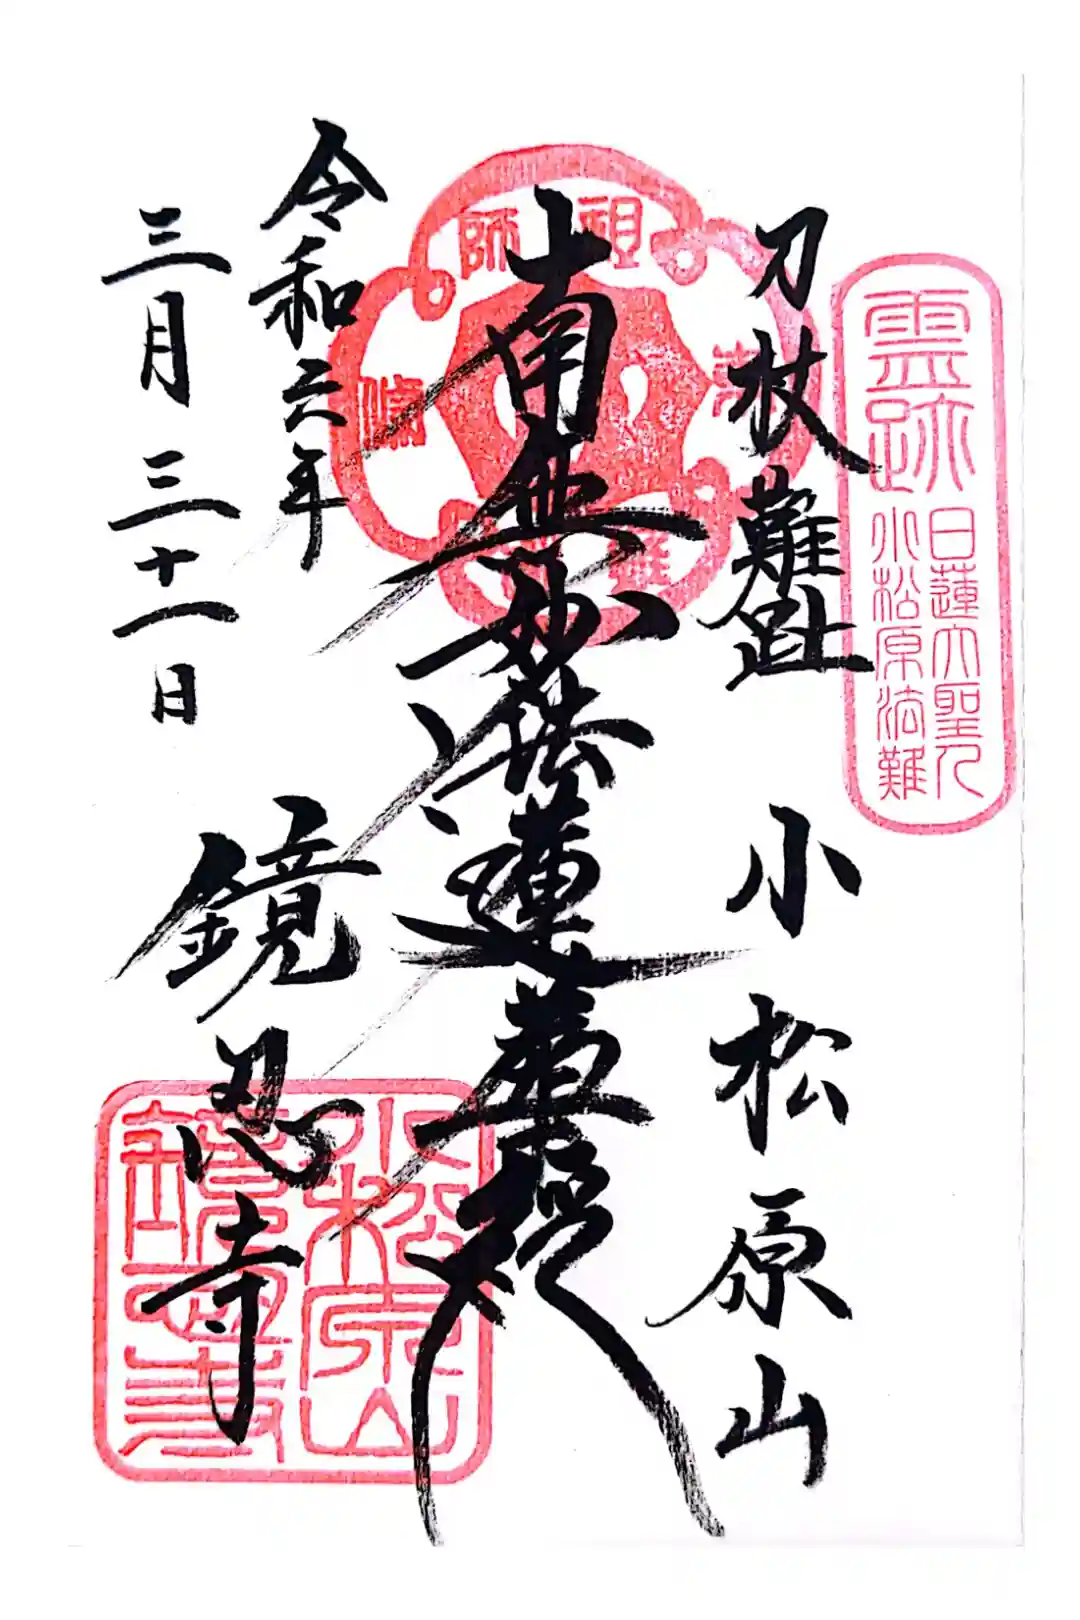 霊跡
日蓮大聖人
小松原法難
刀杖難趾 小松原山
南無妙法蓮華経
祖師
令和六年
三月三十一日
鏡忍寺
小松原山
鏡忍寺